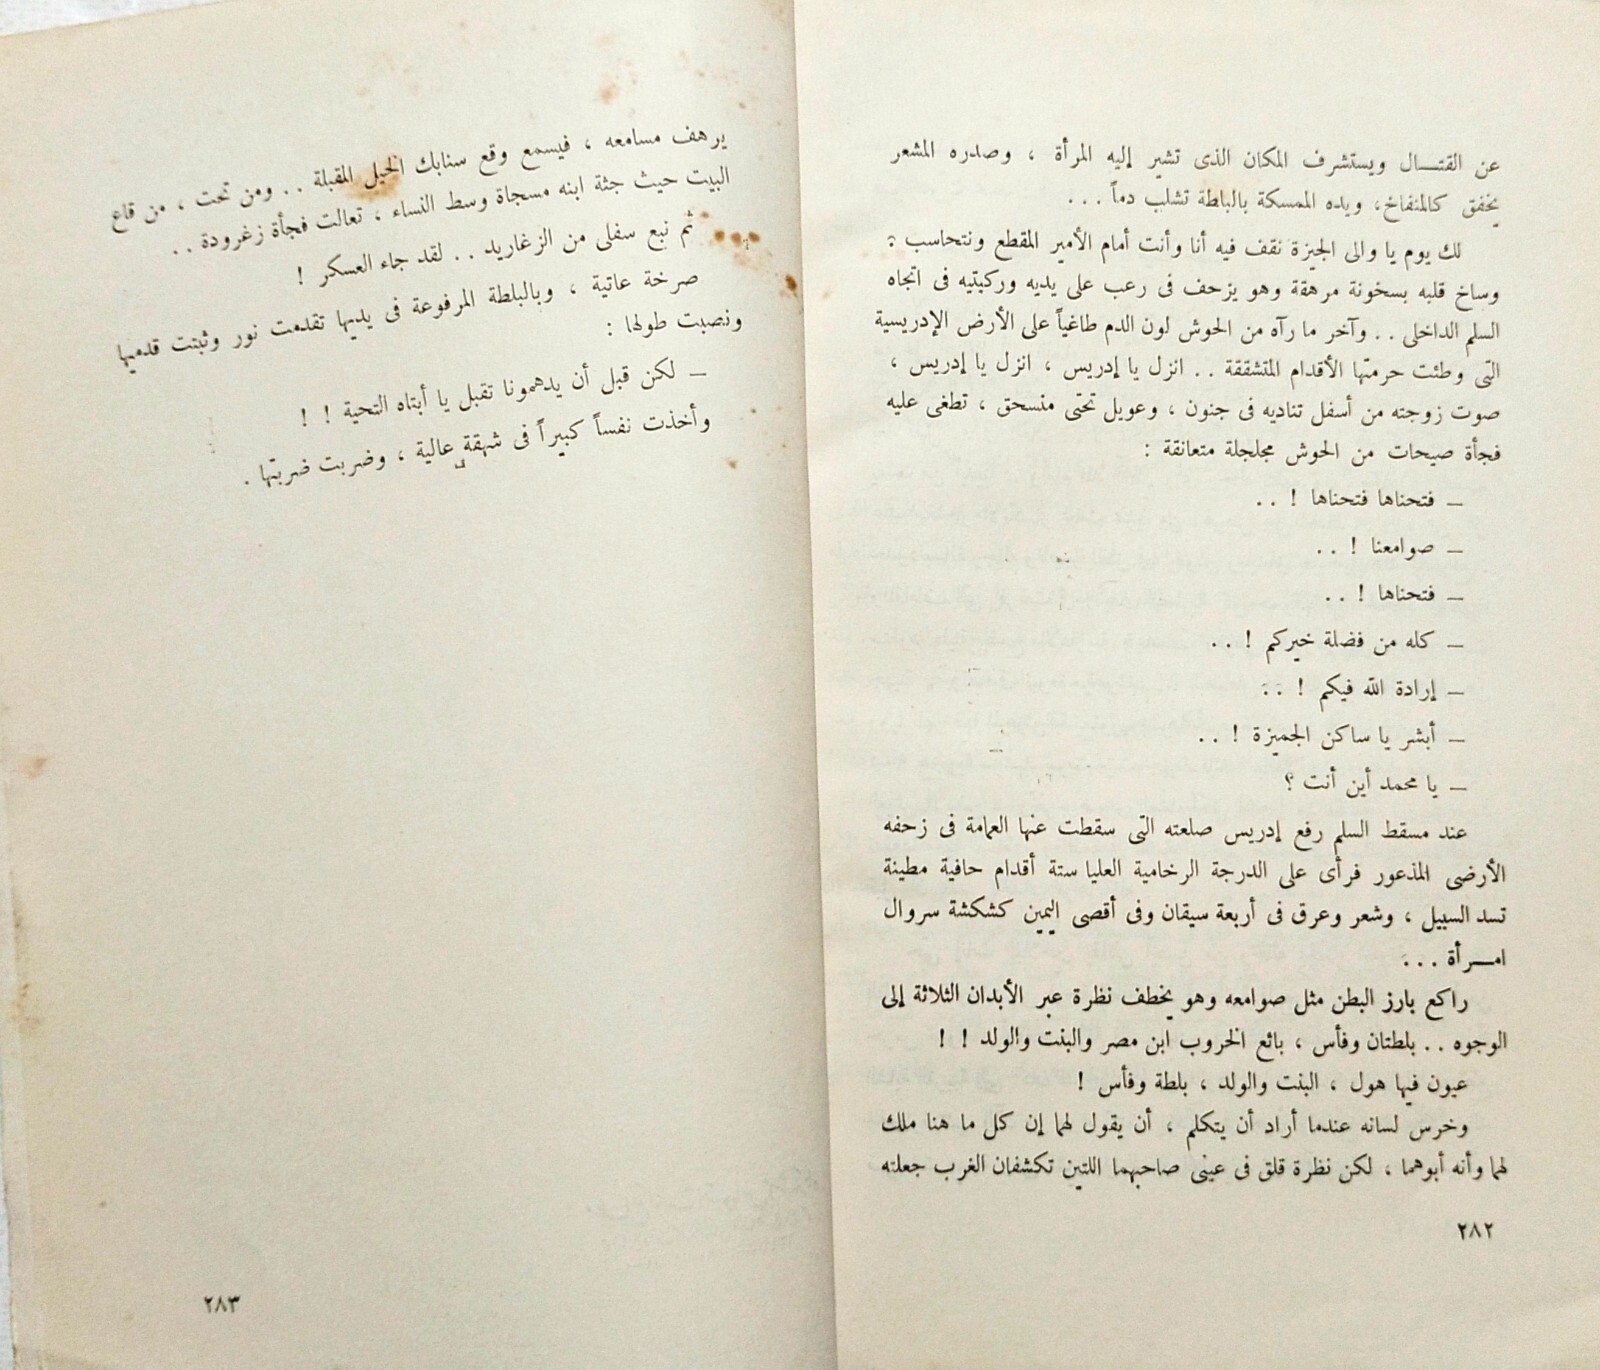 عن القتـــال ويستشرف المكان الذى تشير إليه المرأة ، وصدره المشعر
يخفق كالمنفاخ، ويده الممسكة بالباطة تشلب دماً . . .
لك يوم يا والى الجيزة نقف فيه أنا وأنت أمام الأمير المقطع ونتحاسب .
وساخ قلبه بسخونة مرهقة وهو يزحف فى رعب على يديه وركبتيه فى اتجاه
السلم الداخلى . . وآخر ما رآه من الحوش لون الدم طاغياً على الأرض الإدريسية
التى وطئت حرمتها الأقدام المتشققة . . انزل يا إدريس ، انزل يا إدريس ،
صوت زوجته من أسفل تناديه فى جنون ، وعويل تحتى منسحق ، تطغى عليه
فجأة صيحات من الحوش مجلجلة متعانقة :
— فتحناها فتحناها ! . .
— صوامعنا ! . .
— فتحناها ! . .
— كله من فضلة خيركم ! . .
— إرادة الله فيكم ! . .
— أبشر يا ساكن الجميزة ! . .
— يا محمد أين أنت ؟
عند مسقط السلم رفع إدريس صلعته التى سقطت عنها العمامة فى زحفه
الأرضى المذعور فرأى على الدرجة الرخامية العليا ستة أقدام حافية مطينة
تسد السبيل ، وشعر وعرق فى أربعة سيقان وفى أقصى اليمين كشكشة سروال
امـــرأة . . .
راكع بارز البطن مثل صوامعه وهو يخطف نظرة عبر الأبدان الثلاثة إلى
الوجوه . . بلطتان وفأس ، بائع الخروب ابن مصر والبنت والولد ! !
عيون فيها هول ، البنت والولد ، بلطة وفأس !
وخرس لسانه عندما أراد أن يتكلم ، أن يقول لهما إن كل ما هنا ملك
لهما وأنه أبوهما ، لكن نظرة قلق فى عينى صاحبهما اللتين تكشفان الغرب جعلته
٢٨٢
يرهف مسامعه ، فيسمع وقع سنابك الخيل المقبلة . . ومن تحت ، من قاع
البيت حيث جثة ابنه مسجاة وسط النساء ، تعالت فجأة زغرودة . .
ثم نبع سفلى من الزغاريد . . لقد جاء العسكر !
صرخة عاتية ، وبالبلطة المرفوعة فى يديها تقدمت نور وثبتت قدميها
ونصبت طولها :
— لكن قبل أن يدهمونا تقبل يا أبتاه التحية ! !
وأخذت نفساً كبيراً فى شهقة عالية ، وضربت ضربتها .
٢٨٣